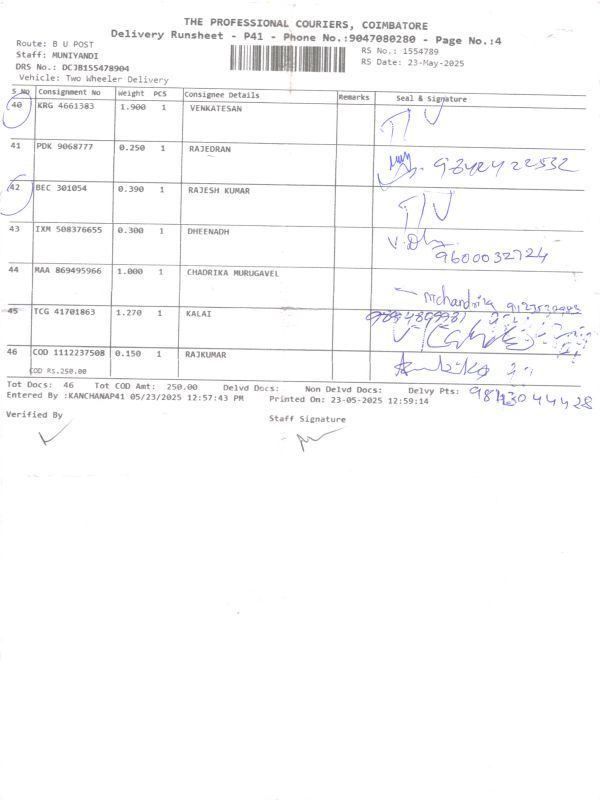 THE PROFESSIONAL COURIERS, COIMBATORE
Delivery Runsheet - P41 - Phone No.:9047080280 - Page No.:4
Route: B U POST
RS No.: 1554789
Staff: MUNIYANDI
RS Date: 23-May-2025
DRS No.: DCJB155478904
Vehicle: Two Wheeler Delivery
S No Consignment No Weight PCS Consignee Details Remarks Seal & Signature
40 KRG 4661383 1.900 1 VENKATESAN
41 PDK 9068777 0.250 1 RAJEDRAN 9842422532
42 BEC 301054 0.390 1 RAJESH KUMAR
43 IXM 508376655 0.300 1 DHEENADH V.Dh
9600032724
44 MAA 869495966 1.000 1 CHADRIKA MURUGAVEL
mchandrika
45 TCG 41701863 1.270 1 KALAI
46 COD 1112237508 0.150 1 RAJKUMAR
COD RS.250.00
Tot Docs: 46 Tot COD Amt: 250.00 Delvd Docs: Non Delvd Docs: Delvy Pts:
Entered By :KANCHANAP41 05/23/2025 12:57:43 PM Printed On: 23-05-2025 12:59:14
Verified By
Staff Signature